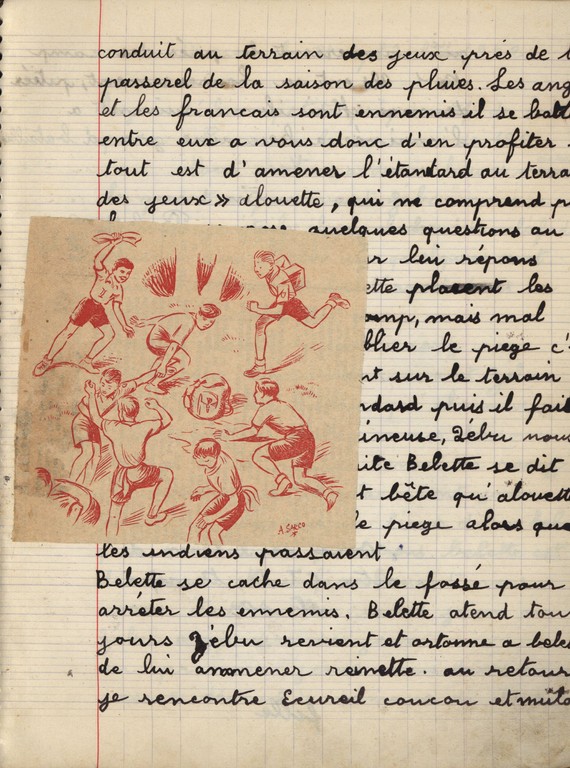 conduit au terrain des jeux prés de
passerel de la saison des pluies. Les ang
et les francais sont ennemis il se batt
entre eux a vous donc d'en profiter
tout est d'amener l'étandard au terra
des jeux» alouette, qui ne comprend p
quelques questions au
r lui répons
ette placent les
amp, mais mal
blier le piege c'
nt sur le terrain
ndard puis il fail
ineuse, Zébu nous
ite Belette se dit
t bête qu'alouett
le piege alors que
les indiens passaient
Belette se cache dans le fossé pour
arréter les ennemis. Belette atend tou
jours Zébu revient et ortonne a bele
de lui ammener reinette. au retour
je rencontre Ecureil coucou et mulo
A SACCO